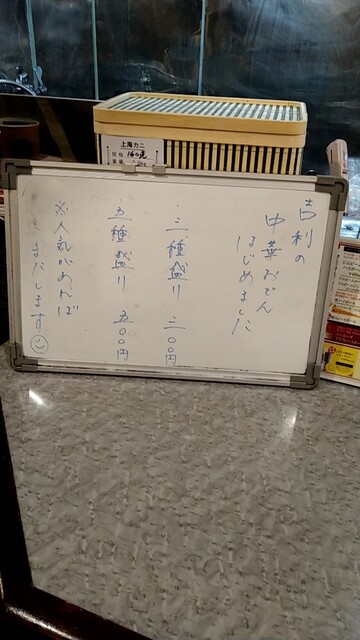 吉利の
中華おでん
はじめました
・三種盛り 三〇〇円
・五種盛り 五〇〇円
※人気があれば
まだします
上海カニ
規格 160克